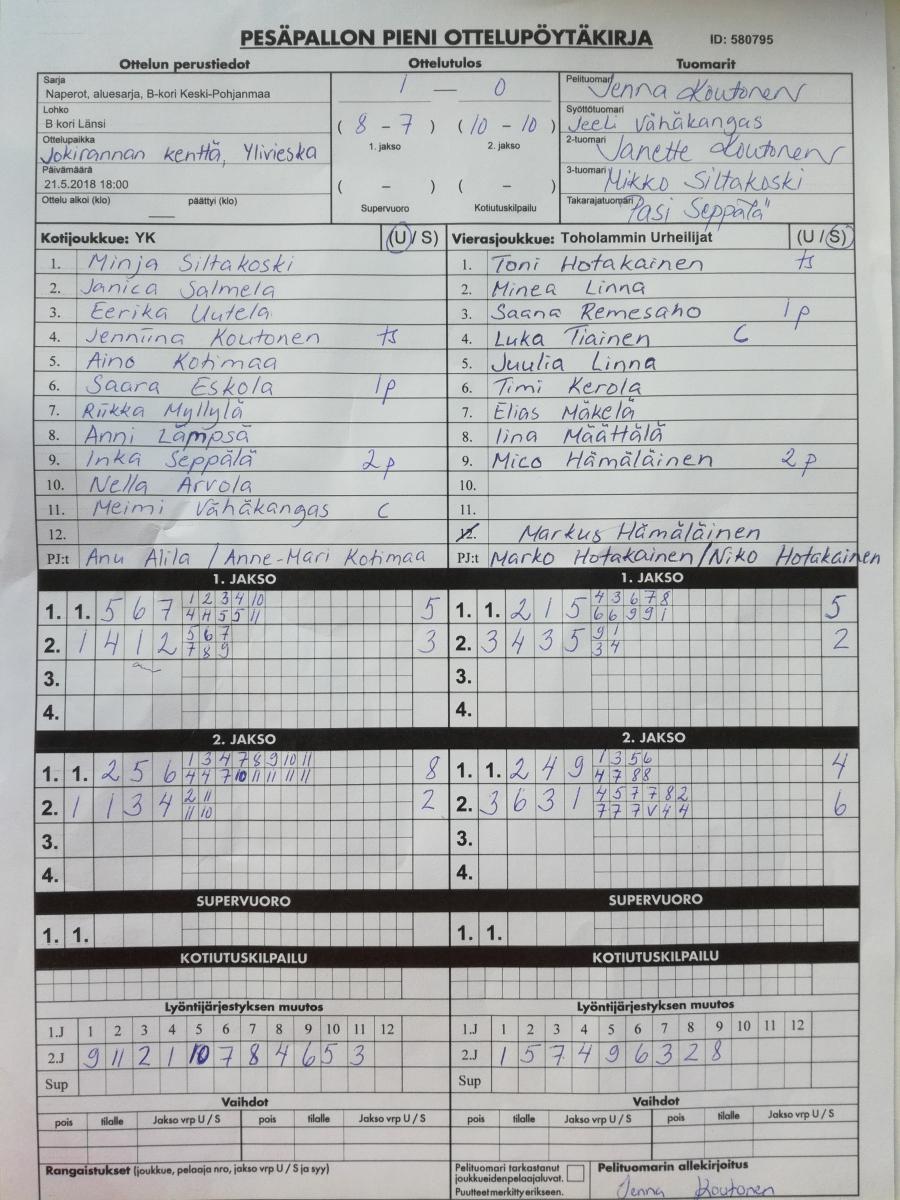 PESÄPALLON PIENI OTTELUPÖYTÄKIRJA ID: 580795
Ottelun perustiedot Ottelutulos Tuomarit
Sarja
Naperot, aluesarja, B-kori Keski-Pohjanmaa
1 — 0
Pelituomari Jenna Koutonen
Lohko
B kori Länsi
( 8 - 7 ) ( 10 - 10 )
1. jakso 2. jakso
Syöttötuomari Jeeli Vähäkangas
Ottelupaikka
Jokirannan kenttä, Ylivieska
2-tuomari Janette Koutonen
Päivämäärä
21.5.2018 18:00
( – ) ( – )
3-tuomari Mikko Siltakoski
Ottelu alkoi (klo) päättyi (klo)
Supervuoro Kotiutuskilpailu
Takarajatuomari Pasi Seppälä
Kotijoukkue: YK (U / S)
1. Minja Siltakoski
2. Janica Salmela
3. Eerika Uutela
4. Jenniina Koutonen ts
5. Aino Kotimaa
6. Saara Eskola 1p
7. Riikka Myllylä
8. Anni Lämpsä
9. Inka Seppälä 2p
10. Nella Arvola
11. Meimi Vähäkangas C
12.
PJ:t Anu Alila / Anne-Mari Kotimaa
Vierasjoukkue: Toholammin Urheilijat (U / S)
1. Toni Hotakainen ts
2. Minea Linna
3. Saana Remesaho 1p
4. Luka Tiainen C
5. Juulia Linna
6. Timi Kerola
7. Elias Mäkelä
8. Iina Määttälä
9. Mico Hämäläinen 2p
10.
11.
12. Markus Hämäläinen
PJ:t Marko Hotakainen/Niko Hotakainen
1. JAKSO
1. 1. 5 6 7 1 2 3 4 10 5
4 4 5 5 11
2. 1 4 1 2 5 6 7 3
7 8 9
3.
4.
1. JAKSO
1. 1. 2 1 5 4 3 6 7 8 5
6 6 9 9 1
2. 3 4 3 5 9 1 2
3 4
3.
4.
2. JAKSO
1. 1. 2 5 6 1 3 4 7 8 9 10 11 8
4 4 7 10 11 11 11 11
2. 1 1 3 4 2 11 2
11 10
3.
4.
2. JAKSO
1. 1. 2 4 9 1 3 5 6 4
4 7 8 8
2. 3 6 3 1 4 5 7 7 8 2 6
7 7 7 V 4 4
3.
4.
SUPERVUORO SUPERVUORO
1. 1. 1. 1.
KOTIUTUSKILPAILU KOTIUTUSKILPAILU
Lyöntijärjestyksen muutos
1.J 1 2 3 4 5 6 7 8 9 10 11 12
2.J 9 11 2 1 10 7 8 4 6 5 3
Sup
Lyöntijärjestyksen muutos
1.J 1 2 3 4 5 6 7 8 9 10 11 12
2.J 1 5 7 4 9 6 3 2 8
Sup
Vaihdot Vaihdot
pois tilalle Jakso vrp U / S pois tilalle Jakso vrp U / S
pois tilalle Jakso vrp U / S pois tilalle Jakso vrp U / S
Rangaistukset (joukkue, pelaaja nro, jakso vrp U / S ja syy)
Pelituomari tarkastanut
joukkueidenpelaajaluvat.
Puutteet merkitty erikseen.
Pelituomarin allekirjoitus
Jenna Koutonen